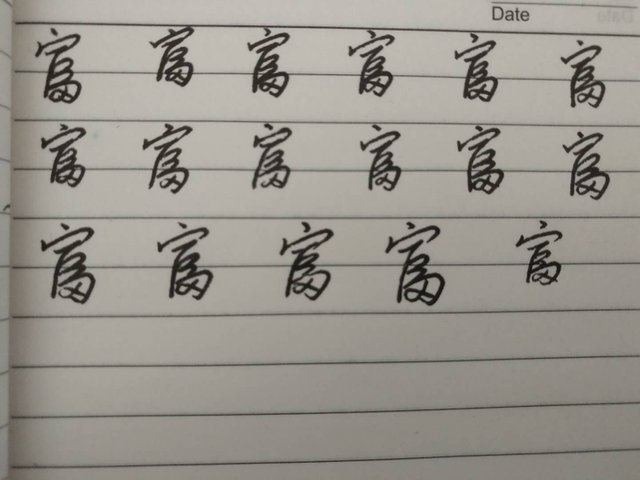 Date
富 富 富 富 富 富
富 富 富 富 富 富
富 富 富 富 富